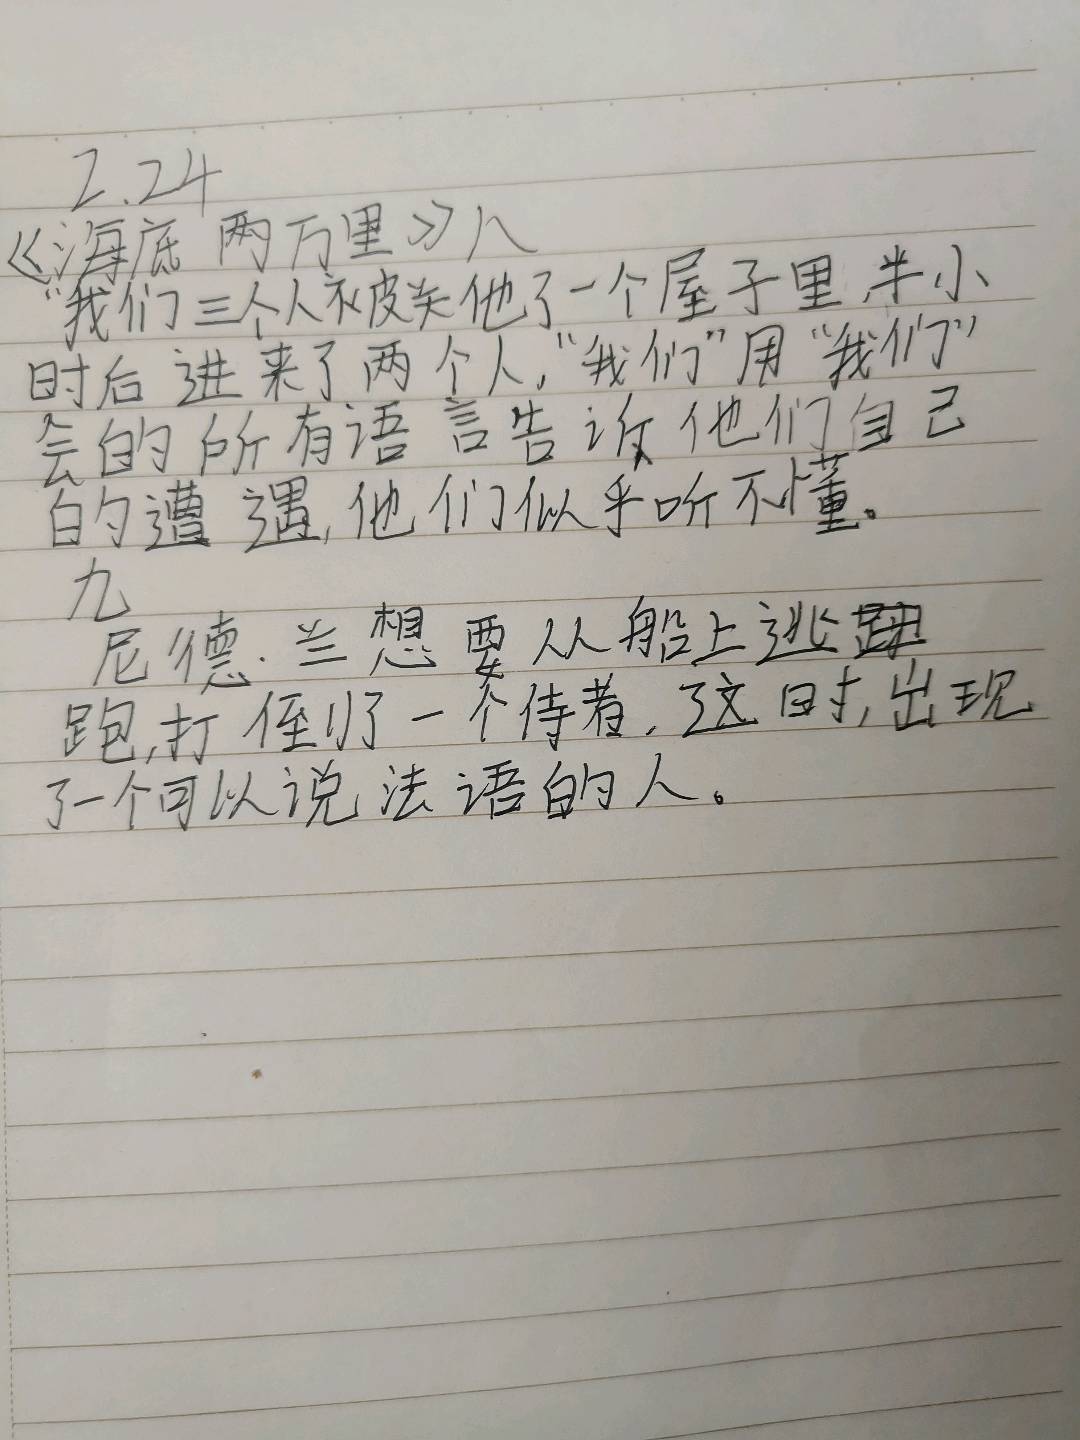 2.24
《海底两万里》八
"我们三个人被关他了一个屋子里,半小
时后进来了两个人,"我们"用"我们"
会的所有语言告诉他们自己
的遭遇,他们似乎听不懂。
九
尼德·兰想要从船上逃
跑,打倒了一个侍者,这时,出现
了一个可以说法语的人。